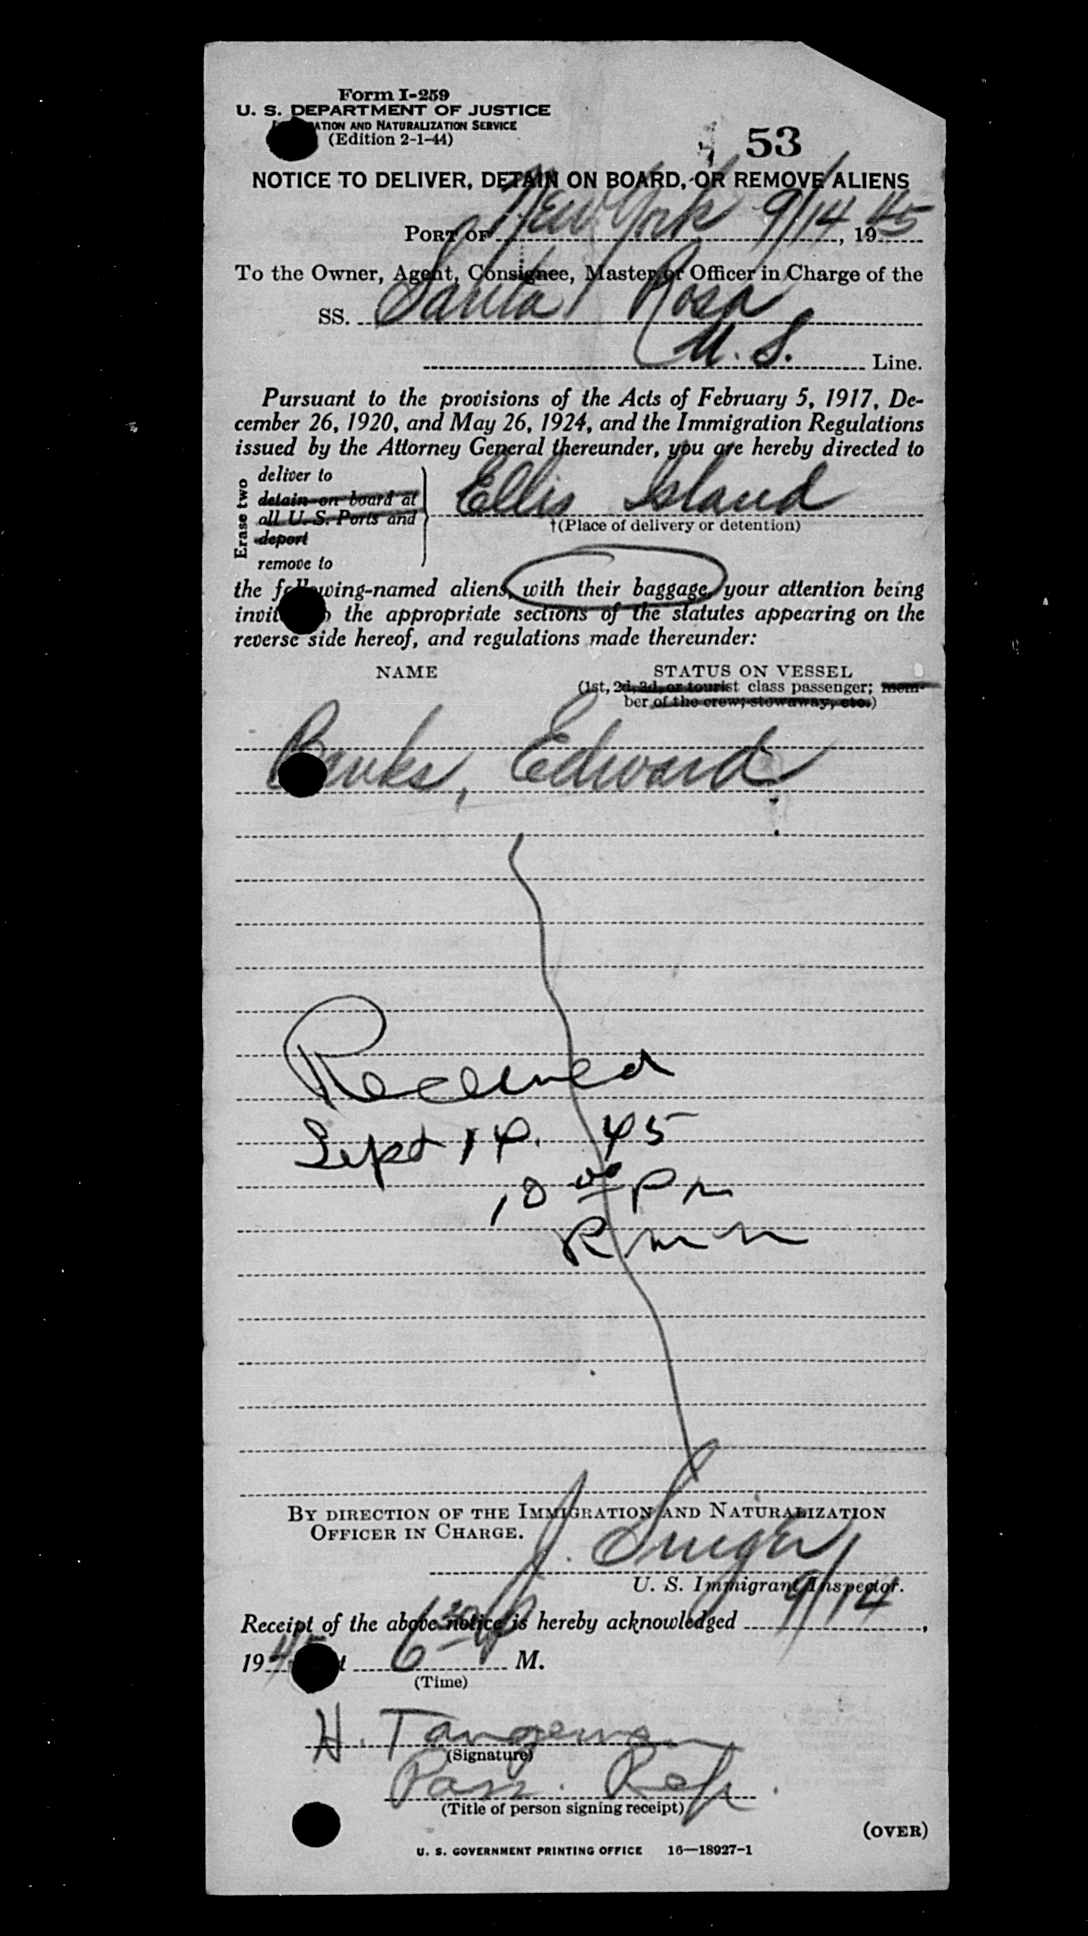 Form I-259
U. S. DEPARTMENT OF JUSTICE
ATION AND NATURALIZATION SERVICE
(Edition 2-1-44)
53
NOTICE TO DELIVER, DETAIN ON BOARD, OR REMOVE ALIENS
PORT OF New York 9/14, 1945
To the Owner, Agent, Consignee, Master or Officer in Charge of the
SS. Santa Rosa
U. S. Line.
Pursuant to the provisions of the Acts of February 5, 1917, De-
cember 26, 1920, and May 26, 1924, and the Immigration Regulations
issued by the Attorney General thereunder, you are hereby directed to
Erase two
deliver to
detain on board at
all U. S. Ports and
deport
remove to
Ellis Island
†(Place of delivery or detention)
the following-named aliens, with their baggage, your attention being
invit the appropriate sections of the statutes appearing on the
reverse side hereof, and regulations made thereunder:
NAME STATUS ON VESSEL
(1st, 2d, 3d, or tourist class passenger; mem-
ber of the crew; stowaway, etc.)
Banks, Edward
Received
Sept 14. 45
10 00 Pm
BY DIRECTION OF THE IMMIGRATION AND NATURALIZATION
OFFICER IN CHARGE.
J.
U. S. Immigrant Inspector.
Receipt of the above notice is hereby acknowledged 9/14,
1945 t 6 30 P M.
(Time)
H. Tangeman
(Signature)
Pass. Rep.
(Title of person signing receipt)
(OVER)
U. S. GOVERNMENT PRINTING OFFICE 16—18927-1